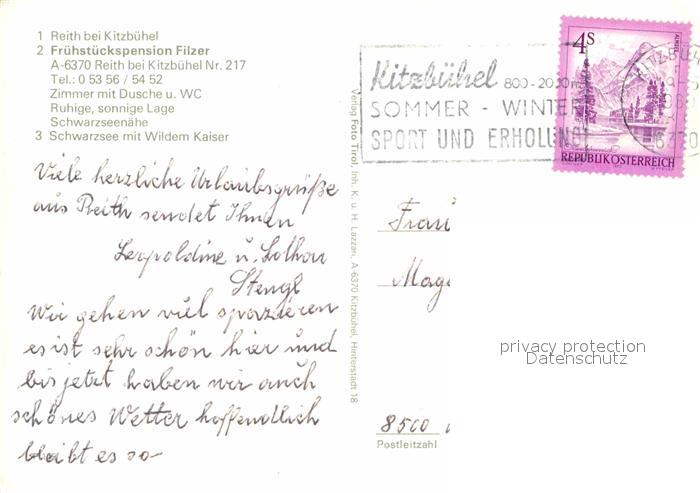 1 Reith bei Kitzbühel
2 Frühstückspension Filzer
A-6370 Reith bei Kitzbühel Nr. 217
Tel.: 0 53 56 / 54 52
Zimmer mit Dusche u. WC
Ruhige, sonnige Lage
Schwarzseenähe
3 Schwarzsee mit Wildem Kaiser
Viele herzliche Urlaubsgrüße
aus Reith sendet Ihnen
Leopoldine u. Lothar
Stengl
Wir gehen viel spazieren
es ist sehr schön hier und
bis jetzt haben wir auch
schönes Wetter hoffendlich
bleibt es so
Verlag Foto Tirol, Inh. K. u. H. Lazzari, A-6370 Kitzbühel, Hinterstadt 18
Kitzbühel 800-2000m
SOMMER - WINTER
SPORT UND ERHOLUNG
4S
ALMSEE
REPUBLIK ÖSTERREICH
KITZBÜH
6370
Frau
Mag
privacy protection
Datenschutz
8500
Postleitzahl